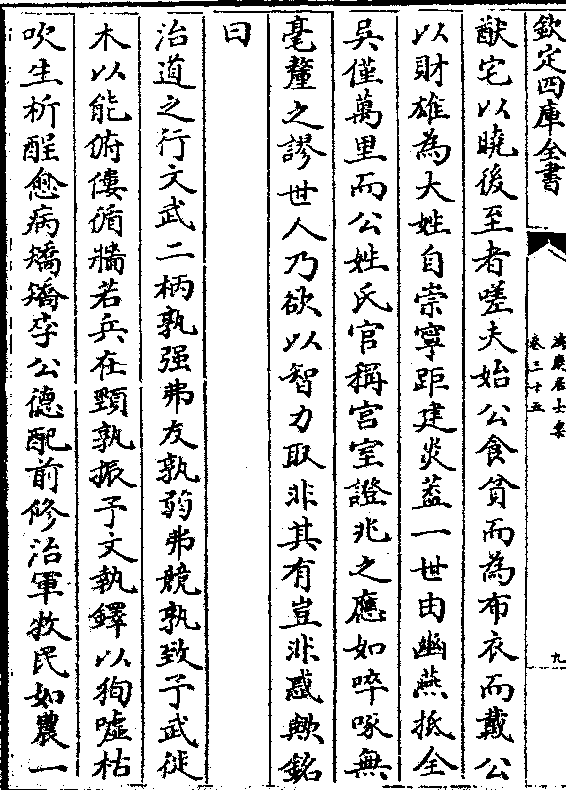 欽定四庫全書
鴻慶居士集
卷三十五
九
猷宅以曉後至者嗟夫始公食貧而為布衣而戴公
以財雄為大姓自崇寧距建炎葢一世由幽燕抵全
吳僅萬里而公姓氏官稱宫室證兆之應如啐啄無
毫釐之謬世人乃欲以智力取非其有豈非惑歟銘
曰
治道之行文武二柄孰强弗友孰弱弗競孰致予武徙
木以能俯僂循牆若兵在頸孰振予文執鐸以狥噓枯
吹生析酲愈病矯矯李公德配前修治軍牧民如農一